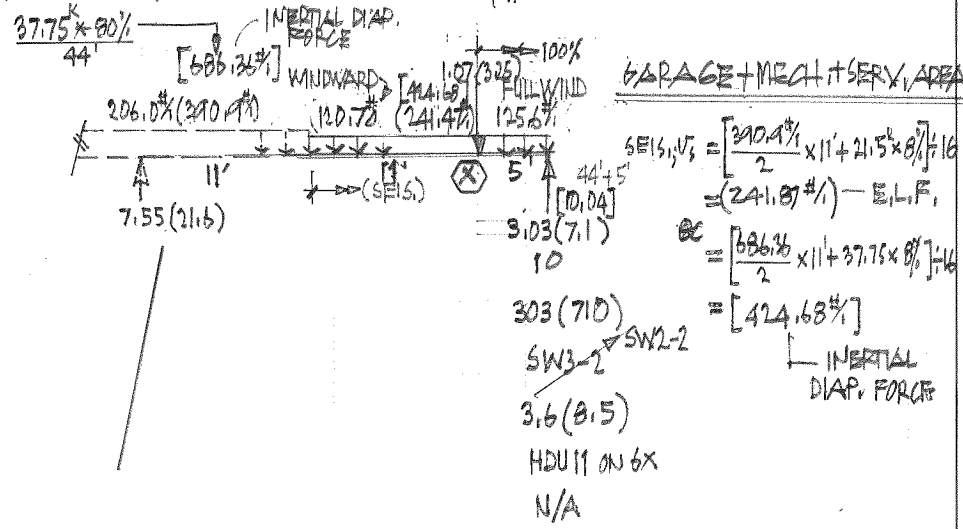 37.75ᴷ × 80%
44'
INERTIAL DIAP.
FORCE
[686.36#/']
206.0#/'(390.9#/')
WINDWARD
[424.68]
120.7#/'
(241.47#/')
1.07(3.25)
100%
FULL WIND
125.6#/'
11'
(SEIS.)
X
5'
44'+5'
[10.04]
7.55(21.6)
3.03(7.1)
10
303(710)
SW3-2
SW2-2
3.6(8.5)
HDU11 ON 6X
N/A
GARAGE+MECH.+SERV. AREA
SEIS., Vs = [390.9#/'/2 × 11' + 21.5ᴷ × 8%] ÷ 16
= (241.87#/') — E.L.F.
= [686.36/2 × 11' + 37.75 × 8%] ÷ 16
= [424.68#/']
INERTIAL
DIAP. FORCE